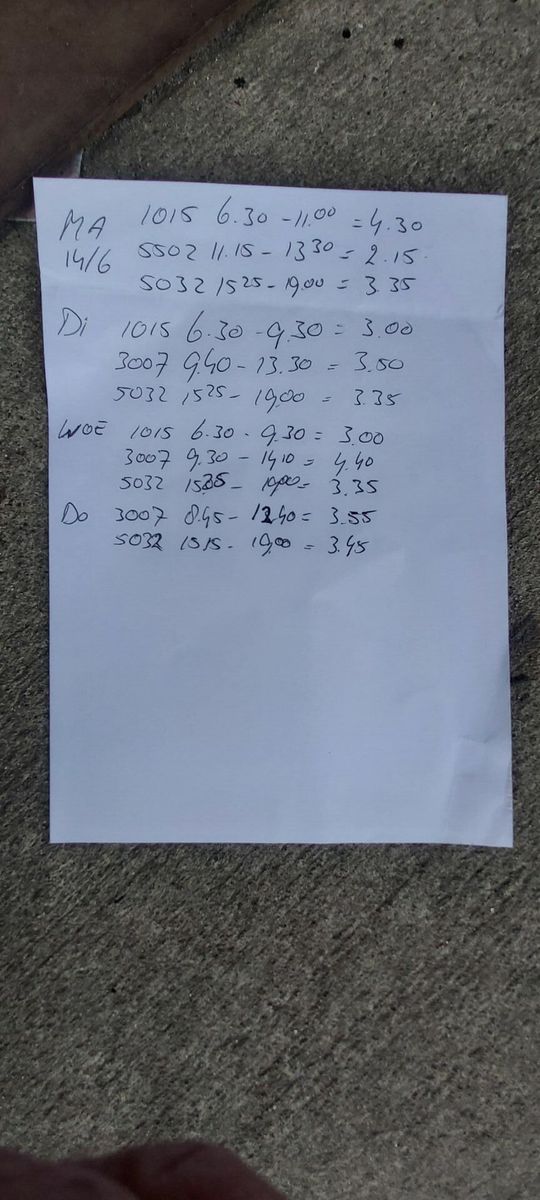 MA 1015 6.30 - 11.00 = 4.30
14/6 5502 11.15 - 13.30 = 2.15
5032 15.25 - 19.00 = 3.35
Di 1015 6.30 - 9.30 = 3.00
3007 9.40 - 13.30 = 3.50
5032 15.25 - 19.00 = 3.35
WOE 1015 6.30 - 9.30 = 3.00
3007 9.30 - 14.10 = 4.40
5032 15.25 - 19.00 = 3.35
Do 3007 8.45 - 12.40 = 3.55
5032 15.15 - 19.00 = 3.45